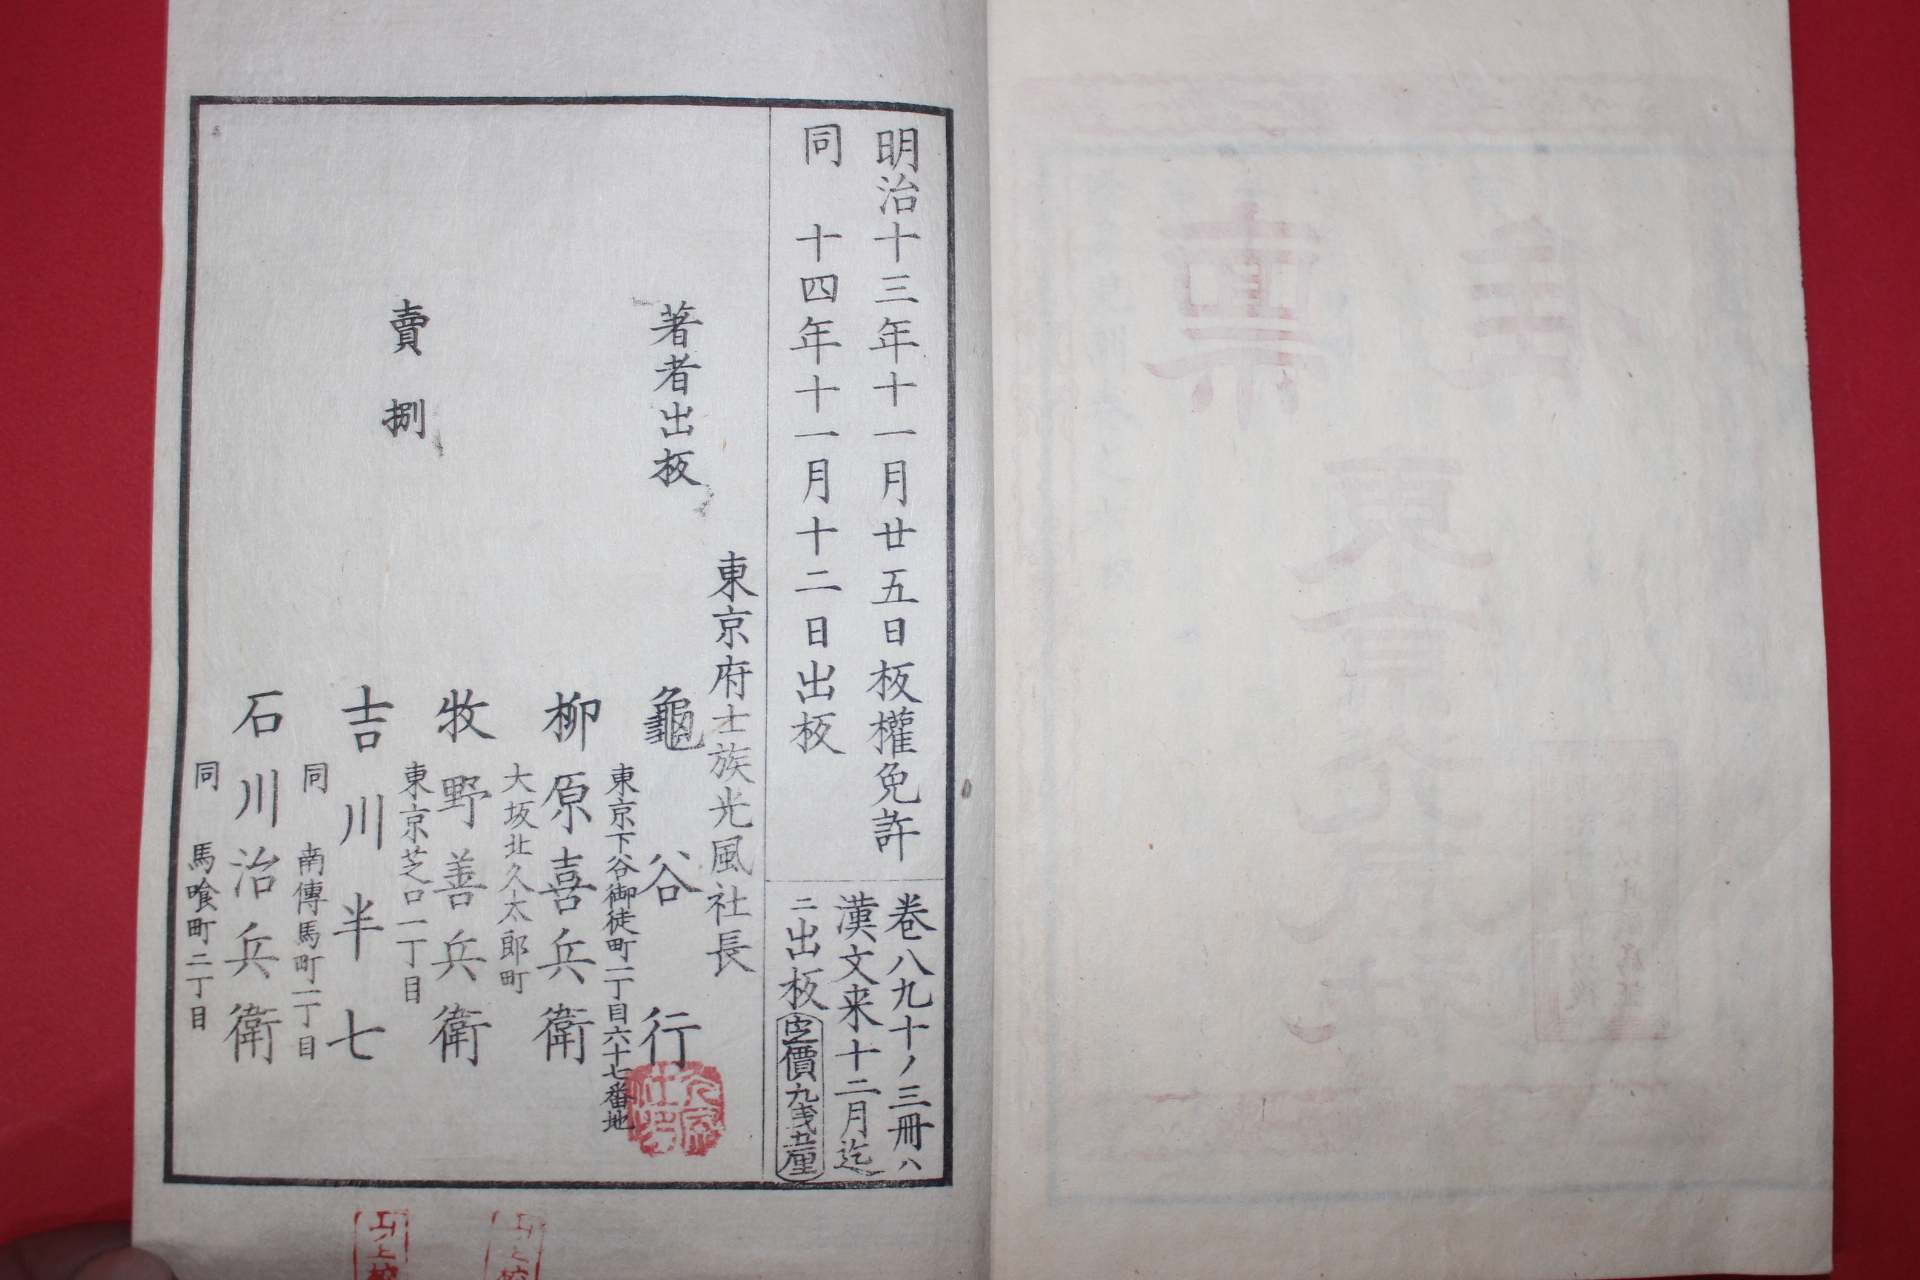 明治十三年十一月廿五日板權免許
同 十四年十一月十二日出板
卷八九十ノ三冊ハ
漢文来十二月迄
ニ出板
定價九戔五厘
著者出板
東京府士族光風社長
龜谷行
東京下谷御徒町一丁目六十七番地
賣捌
柳原喜兵衛
大坂北久太郎町
牧野善兵衛
東京芝口一丁目
吉川半七
同 南傳馬町一丁目
石川治兵衛
同 馬喰町二丁目